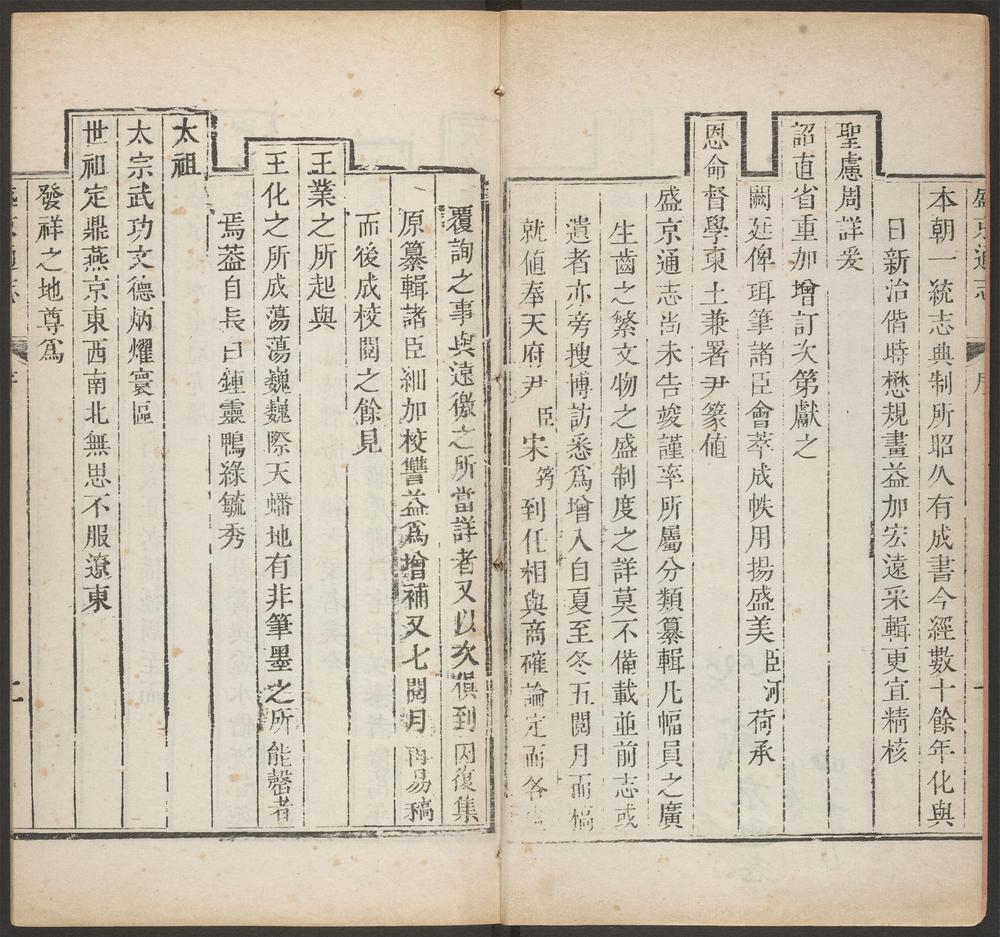 盛京通志 序
本朝一統志典制所昭久有成書今經數十餘年化與
日新治偕時懋規畫益加宏遠采輯更宜精核
聖慮周詳爰
詔直省重加增訂次第獻之
闕廷俾珥筆諸臣會萃成帙用揚盛美臣河荷承
恩命督學東土兼署尹篆值
盛京通志尚未告竣謹率所屬分類纂輯凡幅員之廣
生齒之繁文物之盛制度之詳莫不備載並前志或
遺者亦旁搜博訪悉為增入自夏至冬五閱月而稿
就值奉天府尹臣宋筠到任相與商確論定而各
覆詢之事與遠徼之所當詳者又以次俱到因復集
原纂輯諸臣細加校讐益為增補又七閱月再易稿
而後成校閱之餘見
王業之所起與
王化之所成蕩蕩巍巍際天蟠地有非筆墨之所能罄者
焉葢自長白鍾靈鴨綠毓秀
太祖
太宗武功文德炳燿寰區
世祖定鼎燕京東西南北無思不服遼東
發祥之地尊為